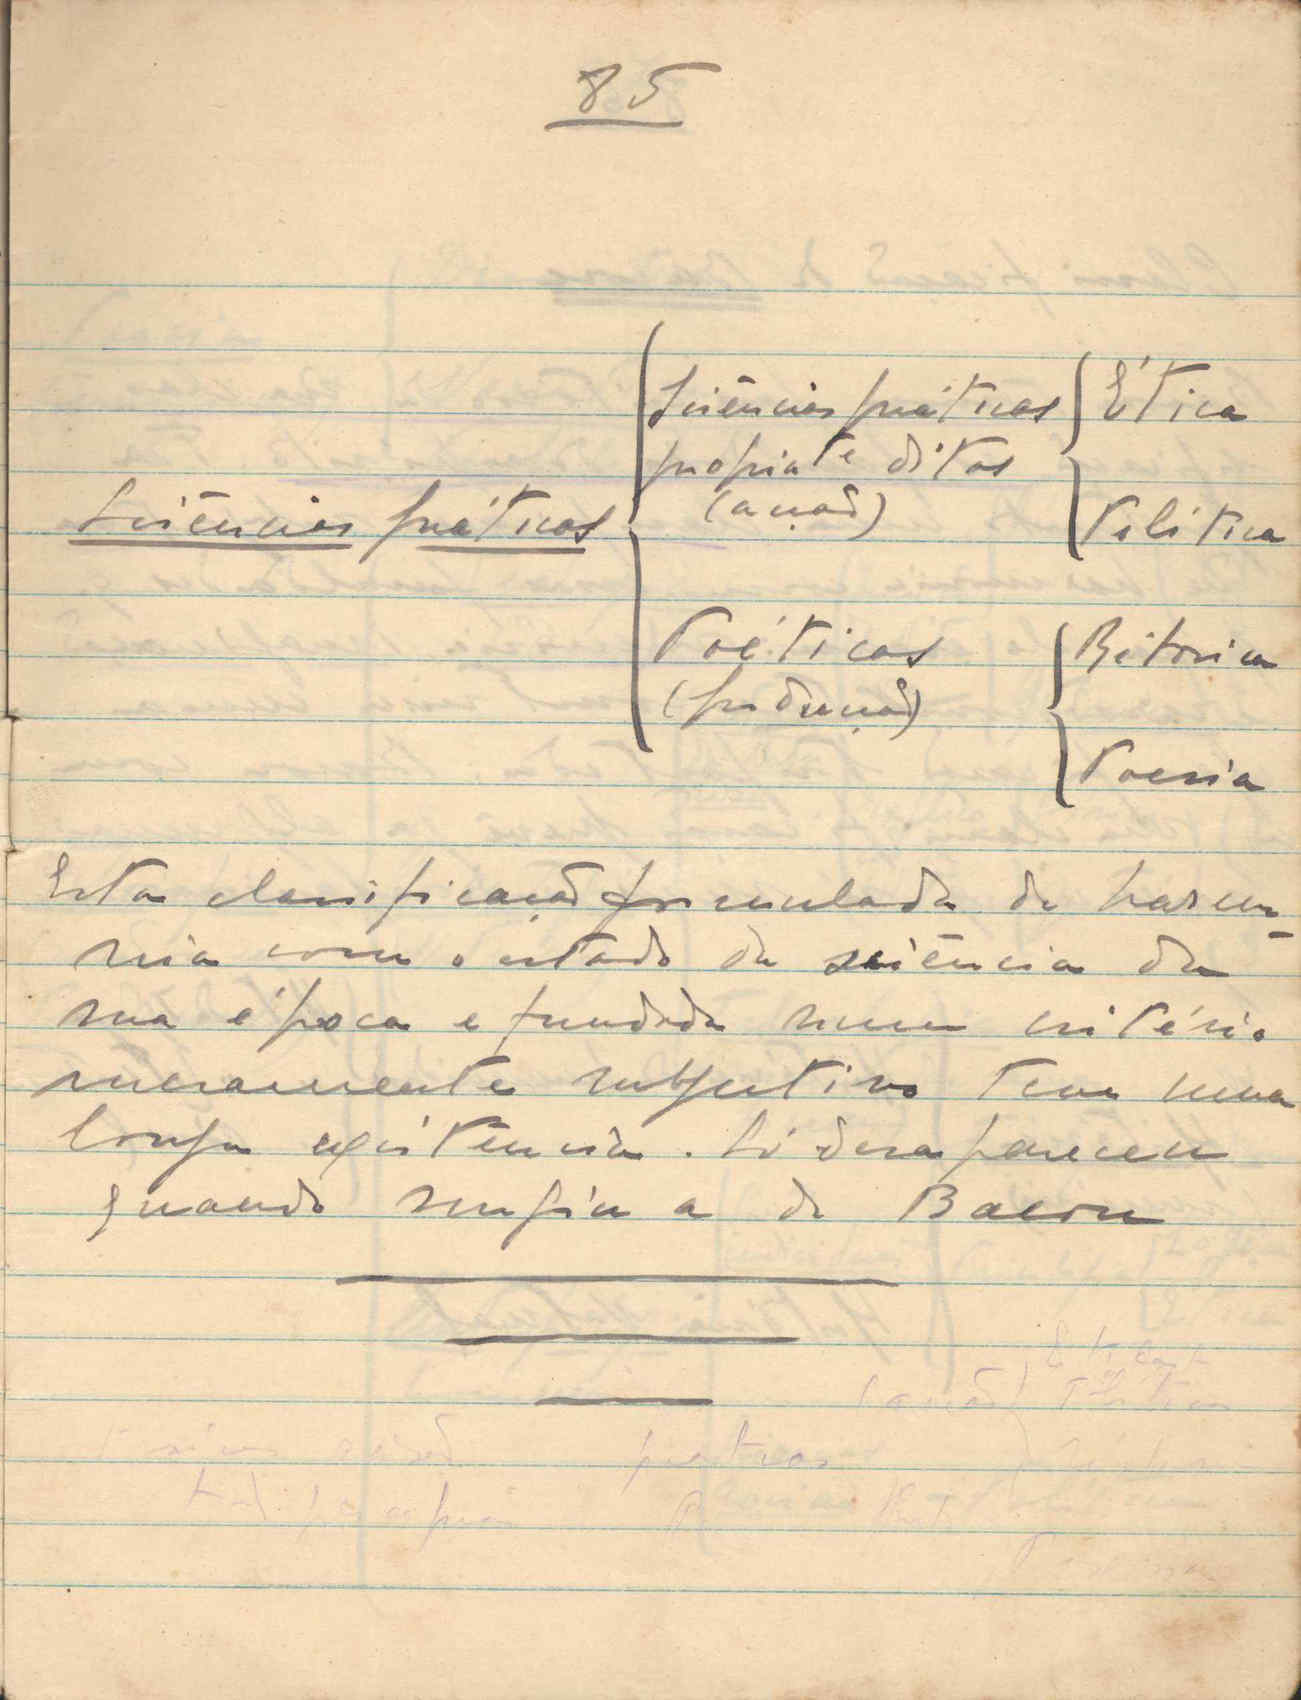 85
Sciências práticas
Sciências práticas
propriate ditas
(acção)
Ética
Política
Poéticas
(producção)
Retorica
Poesia
Esta classificação formulada de harmo-
nia com o estado da sciência da
sua época e fundada num critério
meramente subjectivo teve uma
longa existência. Só desapareceu
quando surgiu a de Bacon